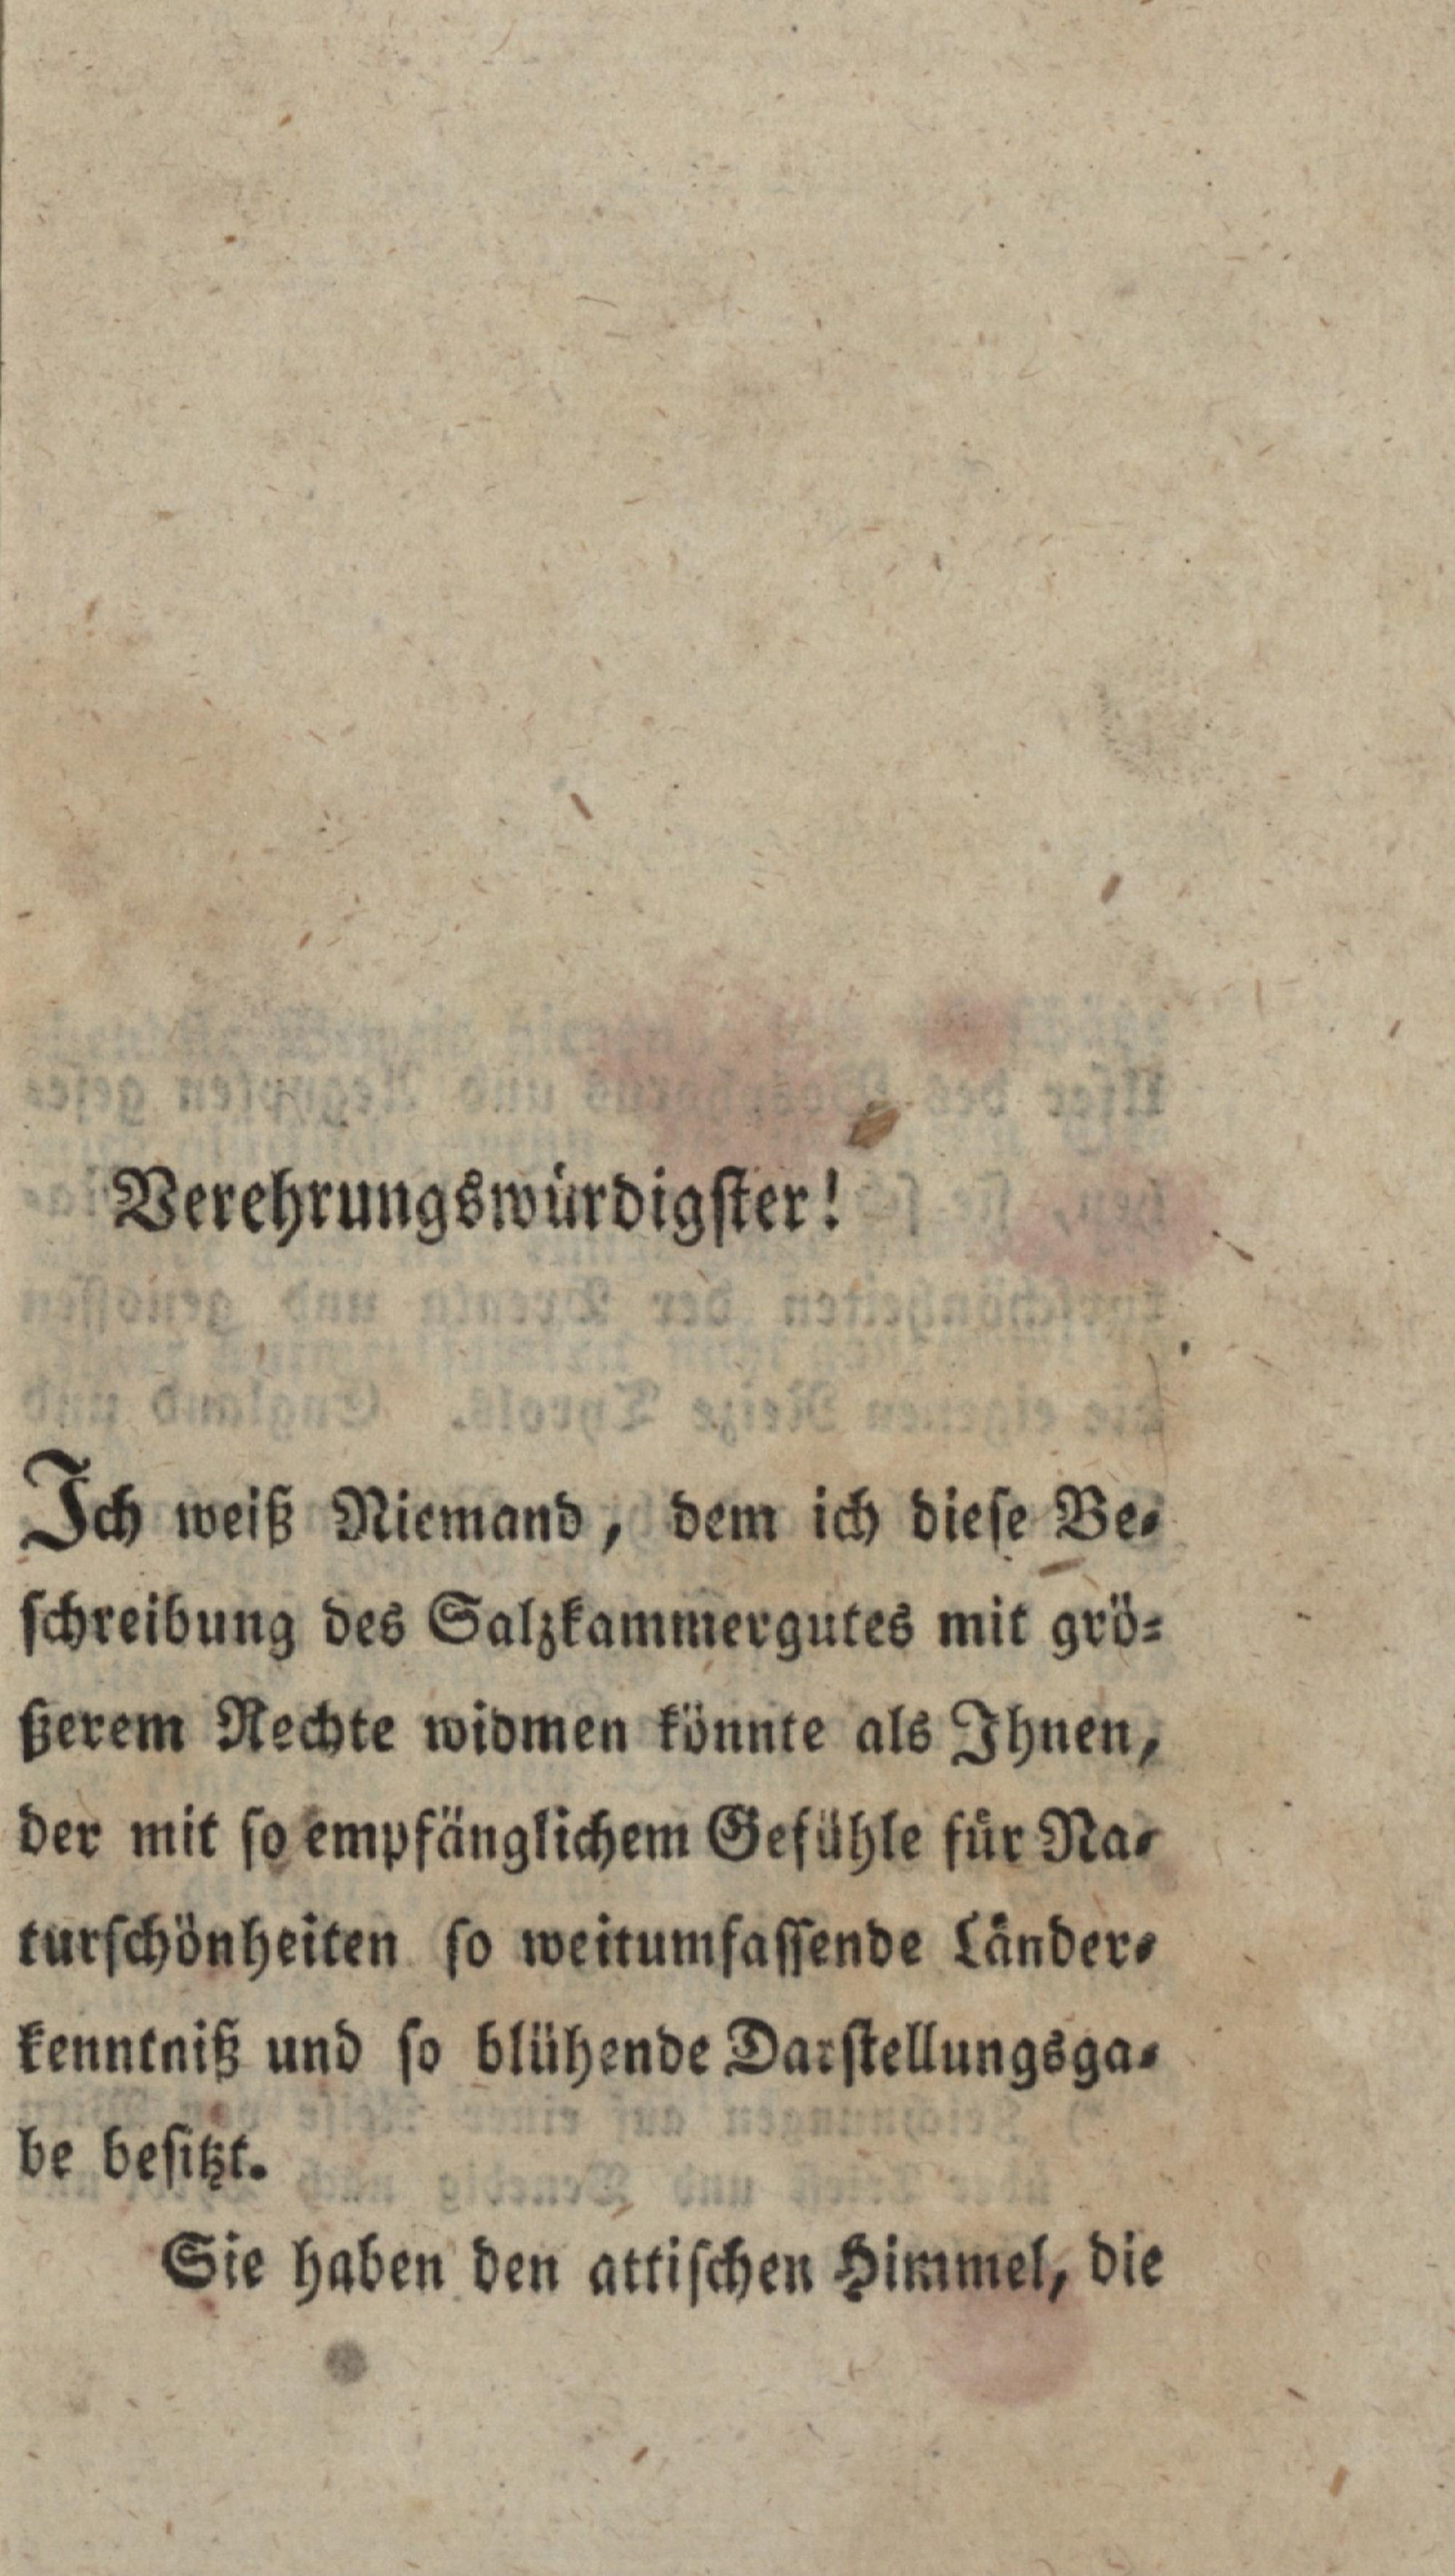 Verehrungswürdigster!
Ich weiß Niemand, dem ich dieſe Be-
ſchreibung des Salzkammergutes mit grö-
ßerem Rechte widmen könnte als Ihnen,
der mit ſo empfänglichem Gefühle für Na-
turſchönheiten ſo weitumfaſſende Länder-
kenntniß und ſo blühende Darſtellungsga-
be beſitzt.
Sie haben den attiſchen Himmel, die